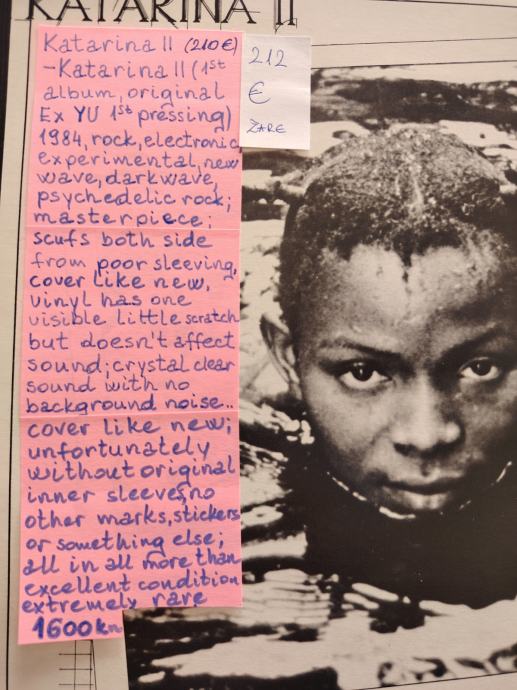 KATARINA II
Katarina II (210€)
-Katarina II (1st
album, original
Ex YU 1st pressing)
1984, rock, electronic
experimental, new
wave, darkwave,
psychedelic rock;
masterpiece;
scufs both side
from poor sleeving,
cover like new,
vinyl has one
visible little scratch
but doesn't affect
sound; crystal clear
sound with no
background noise..
cover like new;
unfortunately
without original
inner sleeves, no
other marks, stickers
or something else;
all in all more than
excellent condition
extremely rare
1600kn
212
€
ZARE